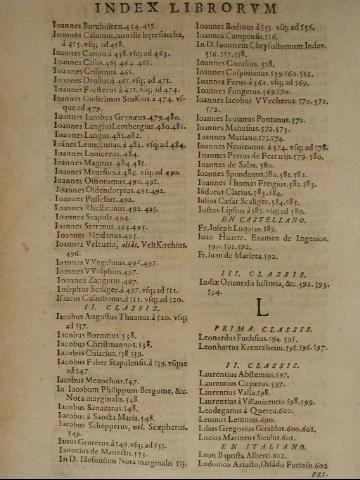 INDEX LIBRORVM
Ioannes Borcholten. 454. 455.
Ioannes Caluinus, non ille hęresiarcha,
à 455. vsq; ad 458.
Ioannes Carion à 458. vsq; ad 463.
Ioannes Casus. 463. 464. 465.
Ioannes Crispinus. 465.
Ioannes Drusius à 465. vsq; ad 471.
Ioannes Forsterus à 471. vsq; ad 474.
Ioannes Guilielmus Stukius à 474. vs-
que ad 479.
Ioannes Iacobus Grynæus. 479. 480.
Ioannes Langius Lembergius. 480. 481.
Ioannes Langus. 481. 482.
Ioānes Leunclauius. à 482. vsq; ad 484.
Ioannes Lonicerus. 484.
Ioannes Magirus. 484. 485.
Ioannes Meursius. à 486. vsq; ad 490.
Ioannes Oiñotomus. 490. 491.
Ioannes Oldendorpius. 491. 492.
Ioannes Posselius. 492.
Ioannes Rhellicanus. 492. 493.
Ioannes Scapula. 494.
Ioannes Serranus. 494. 495.
Ioannes Sleidanus. 495.
Ioannes Velcurio, aliàs, Velt Kirchius,
496.
Ioannes VVegelinus. 496. 497.
Ioannes VVolphius. 497.
Ioannes Zangerus. 497.
Iosephus Scaliger à 497. vsq; ad 511.
Isacus Casaubonus. à 511. vsq; ad 520.
II. CLASSIS.
Iacobus Augustus Thuanus. à 520. vsq;
ad 537.
Iacobus Bornitius. 538.
Iacobus Christmannus. 538.
Iacobus Cuiacius. 538. 539.
Iacobus Faber Stapulensis. à 539. vsque
ad 547.
Iacobus Menochius. 547.
In Iacobum Philippum Bergome, &c.
Nota marginalis. 548.
Iacobus Sanazarus. 548.
Iacobus à Sancta Maria. 548.
Iacobus Schepperus, vel, Scepherus.
549.
Ianus Gruterus. à 549. vsq; ad 553.
Iarrocius de Manectis. 553.
In D. Illefonsum Nota marginalis 553.
Ioannes Bodinus à 553. vsq; ad 556.
Ioannes Campensis. 556.
In D. Ioannem Chrysostomum Index.
556. 557. 558.
Ioannes Corasius. 558.
Ioannes Cuspinianus. 559. 560. 561.
Ioannes Ferus. à 561. vsq; ad 569.
Ioannes Fungerus. 569. 570.
Ioannes Iacobus VVecherus. 570. 571.
572.
Ioannes Iouianus Pontanus. 572.
Ioannes Mahusius. 572. 573.
Ioannes Mariana. 573. 574.
Ioannes Neuizanus. à 574. vsq; ad 578.
Ioannes Petrus de Ferrarijs. 579. 580.
Ioannes de Salas. 580.
Ioannes Spondanus. 580. 581. 582.
Ioannes Thomas Freigius. 582. 583.
Isidarus Clarius. 583. 584.
Iulius Cæsar Scaliger. 584. 585.
Iustus Lipsius à 585. vsq; ad 589.
EN CASTELLANO.
Fr. Ioseph Luquian 589.
Iuan Huarte. Examen de Ingenios.
590. 591. 592.
Fr. Iuan de Marieta. 592.
III. CLASSIS.
Index Orientalis historiæ, &c. 592. 593.
594.
L
PRIMA CLASSIS.
Leonardus Fuchsius. 594. 595.
Leonhartus Krentzheim. 595. 596. 597.
II. CLASSIS.
Laurentius Abstemius. 597.
Laurentius Cupærus. 597.
Laurentius Valla. 598.
Laurentius à Villauicentio. 598. 599.
Leodegarius à Quercu. 600.
Leuinus Lemnius. 600.
Lilius Gregorius Giraldus. 600. 601.
Lucius Marineus Siculus. 601.
EN ITALIANO.
Leon Baptista Alberti. 602.
Ludouico Ariosto, Orlādo Furioso. 602
PRI-